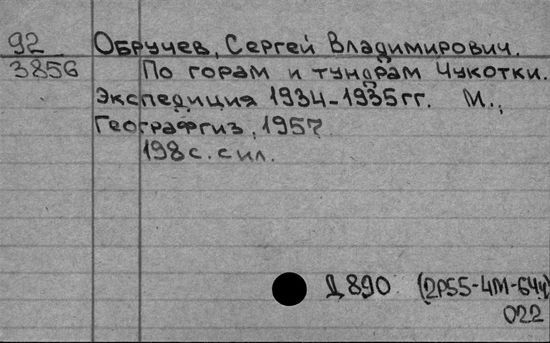 92 Обручев, Сергей Владимирович.
3856 По горам и тундрам Чукотки.
Экспедиция 1934-1935гг. М.,
Географгиз, 1957
198с. с ил.
Д890 (2Р55-4М-64ч
022